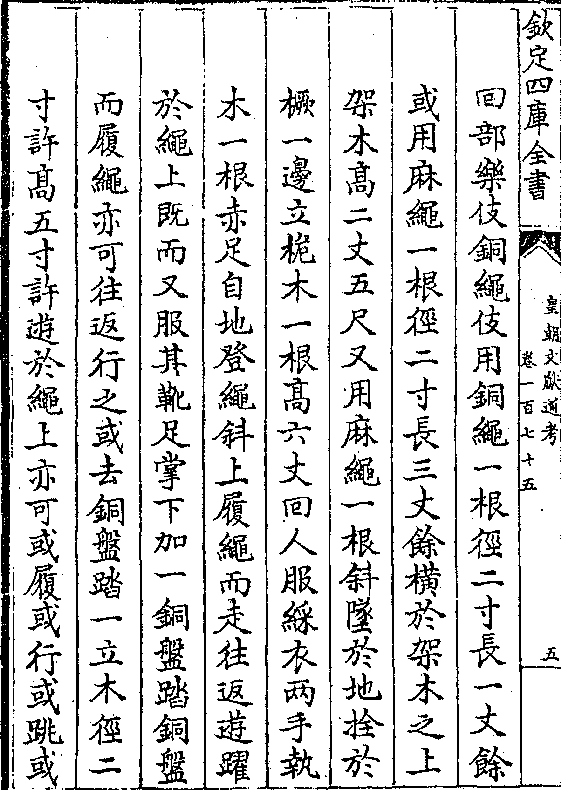 欽定四庫全書
皇朝文獻通考
卷一百七十五
五
回部樂伎銅繩伎用銅繩一根徑二寸長一丈餘
或用麻繩一根徑二寸長三丈餘橫於架木之上
架木髙二丈五尺又用麻繩一根斜墜於地拴於
橛一邊立桅木一根髙六丈回人服綵衣兩手執
木一根赤足自地登繩斜上履繩而走往返遊躍
於繩上既而又服其靴足掌下加一銅盤踏銅盤
而履繩亦可往返行之或去銅盤踏一立木徑二
寸許髙五寸許遊於繩上亦可或履或行或跳或